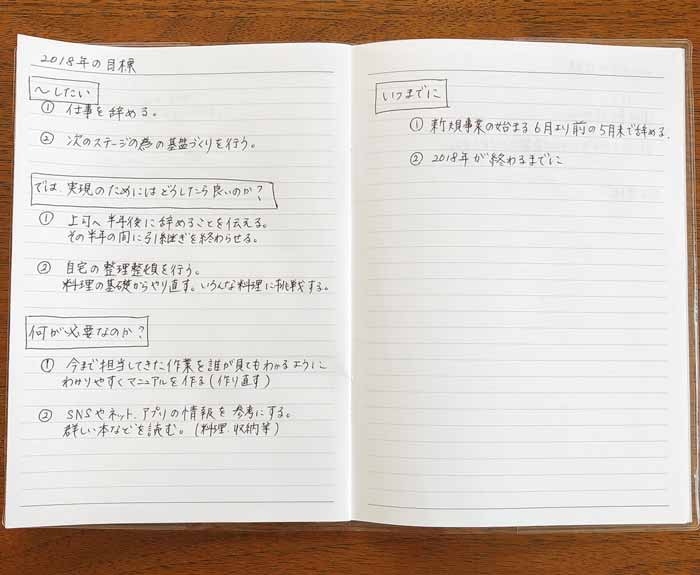 2018年の目標
～したい
① 仕事を辞める。
② 次のステージの為の基盤づくりを行う。
では、実現のためにはどうしたら良いのか?
① 上司へ半年後に辞めることを伝える。
その半年の間に引継ぎを終わらせる。
② 自宅の整理整頓を行う。
料理の基礎からやり直す。いろんな料理に挑戦する。
何が必要なのか?
① 今まで担当してきた作業を誰が見てもわかるように
わかりやすくマニュアルを作る(作り直す)
② SNSやネット、アプリの情報を参考にする。
詳しい本などを読む。(料理、収納等)
いつまでに
① 新規事業の始まる6月より前の5月末で辞める.
② 2018年が終わるまでに